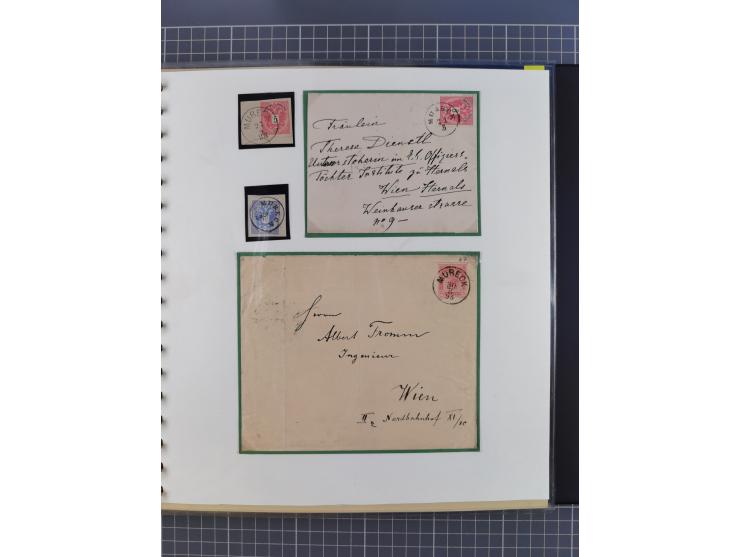 MURECK
5
MURECK
MURECK
Fräulein
Therese Dienstl
Untervorsteherin im k.k. Offiziers-
Töchter Institute zu Hernals
Wien Hernals
Weinhauser strasse
no 9 —
MURECK
Herrn
Albert Fromm
Ingenieur
Wien
II/2 Nordbahnhof XI/10